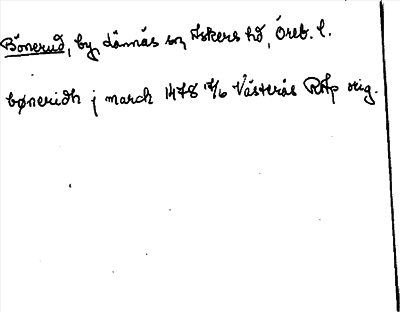 Bönerud, by, Lännäs sn, Askers hd, Öreb. l.
bøneridh j march 1478 Västerås RAp orig.